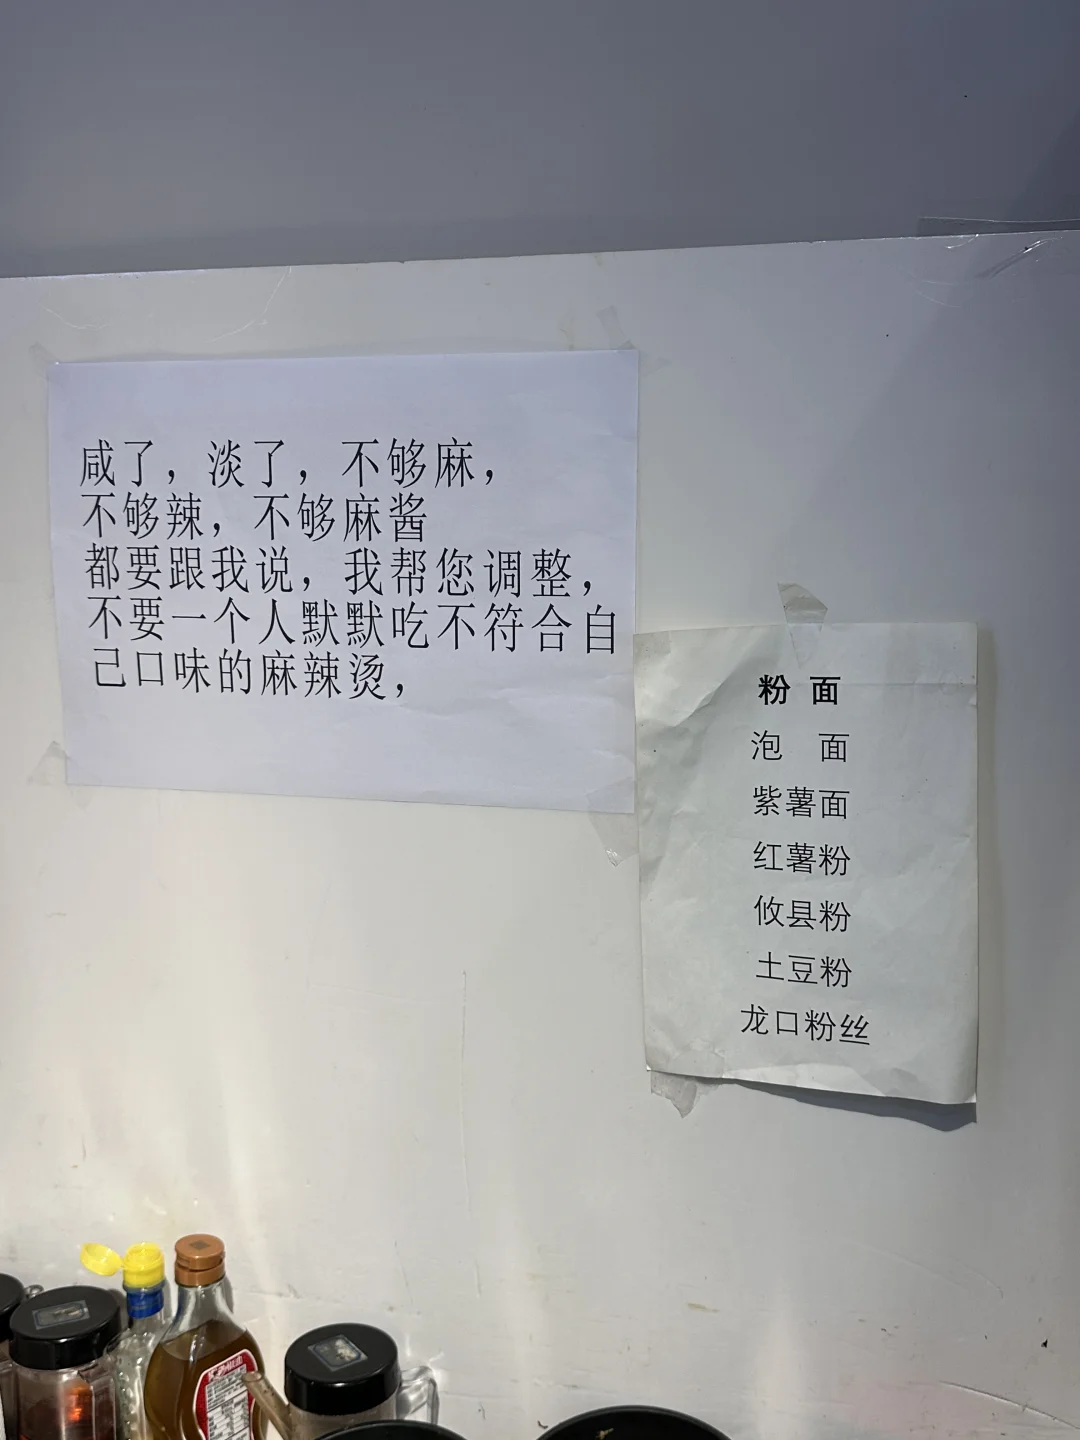 咸了，淡了，不够麻，
不够辣，不够麻酱
都要跟我说，我帮您调整，
不要一个人默默吃不符合自
己口味的麻辣烫，
粉 面
泡 面
紫薯面
红薯粉
攸县粉
土豆粉
龙口粉丝